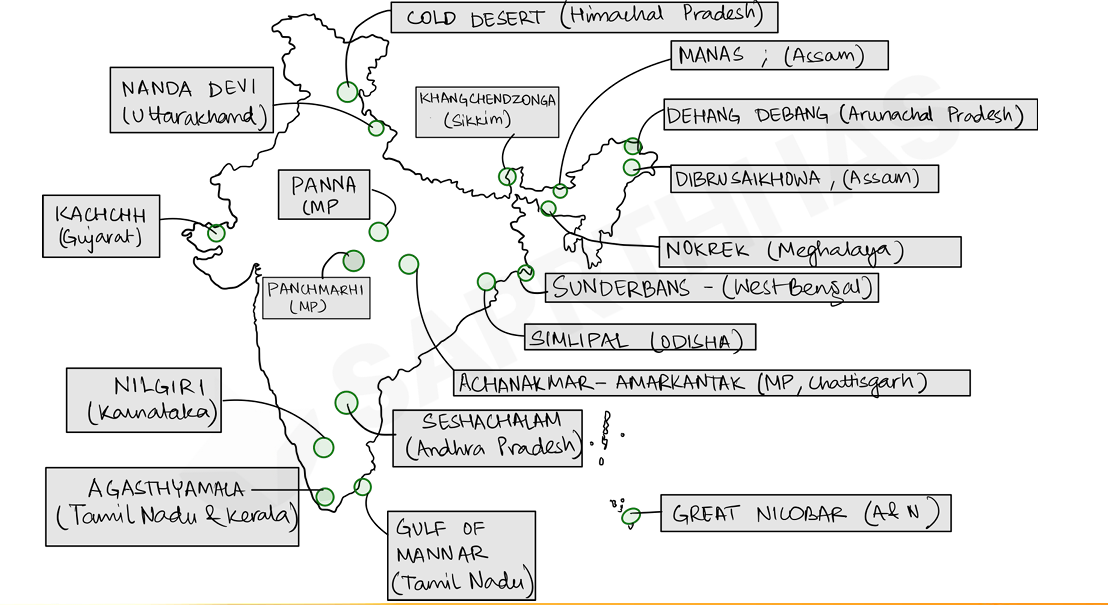 COLD DESERT (Himachal Pradesh)
MANAS ; (Assam)
NANDA DEVI
(Uttarakhand)
KHANGCHENDZONGA
(Sikkim)
DEHANG DEBANG (Arunachal Pradesh)
DIBRUSAIKHOWA , (Assam)
PANNA
(MP
KACHCHH
(Gujarat)
NOKREK (Meghalaya)
PANCHMARHI
(MP)
SUNDERBANS - (West Bengal)
SIMLIPAL (ODISHA)
ACHANAKMAR - AMARKANTAK (MP, Chattisgarh)
NILGIRI
(Karnataka)
SESHACHALAM
(Andhra Pradesh)
AGASTHYAMALA
(Tamil Nadu & Kerala)
GREAT NICOBAR (A&N)
GULF OF
MANNAR
(Tamil Nadu)